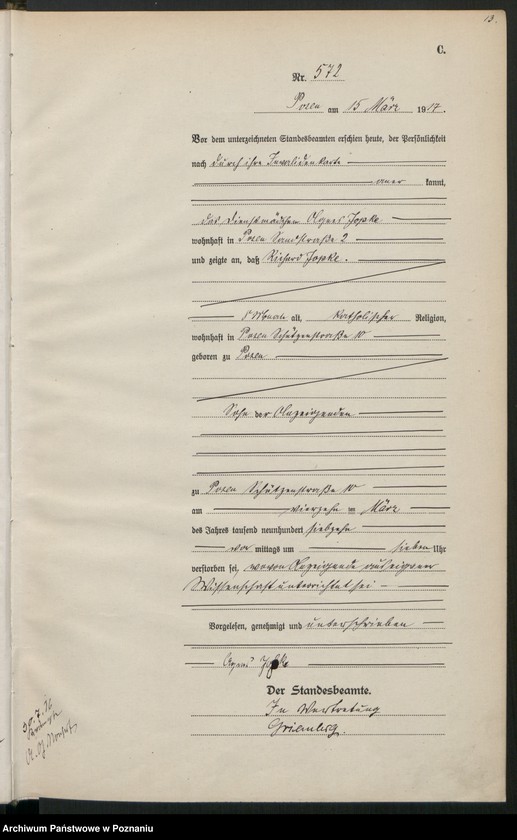 13.
C.
Nr. 572
Posen am 15 März 1917.
Vor dem unterzeichneten Standesbeamten erschien heute, der Persönlichkeit
nach durch ihre Invalidenkarte
aner kannt,
das Dienstmädchen Agnes Jopke
wohnhaft in Posen Sandstraße 2
und zeigte an, daß Richard Jopke.
Monate alt, katholischer Religion,
wohnhaft in Posen Schützenstraße 10
geboren zu Posen
Sohn der Anzeigenden
zu Posen Schützenstraße 10
am vierzehn ten März
des Jahres tausend neunhundert siebzehn
vor mittags um sieben Uhr
verstorben sei, wovon Anzeigende aus eigner
Wissenschaft unterrichtet sei
Vorgelesen, genehmigt und unterschrieben
Agnes Jopke
Der Standesbeamte.
In Vertretung
30.7.
Archiwum Państwowe w Poznaniu